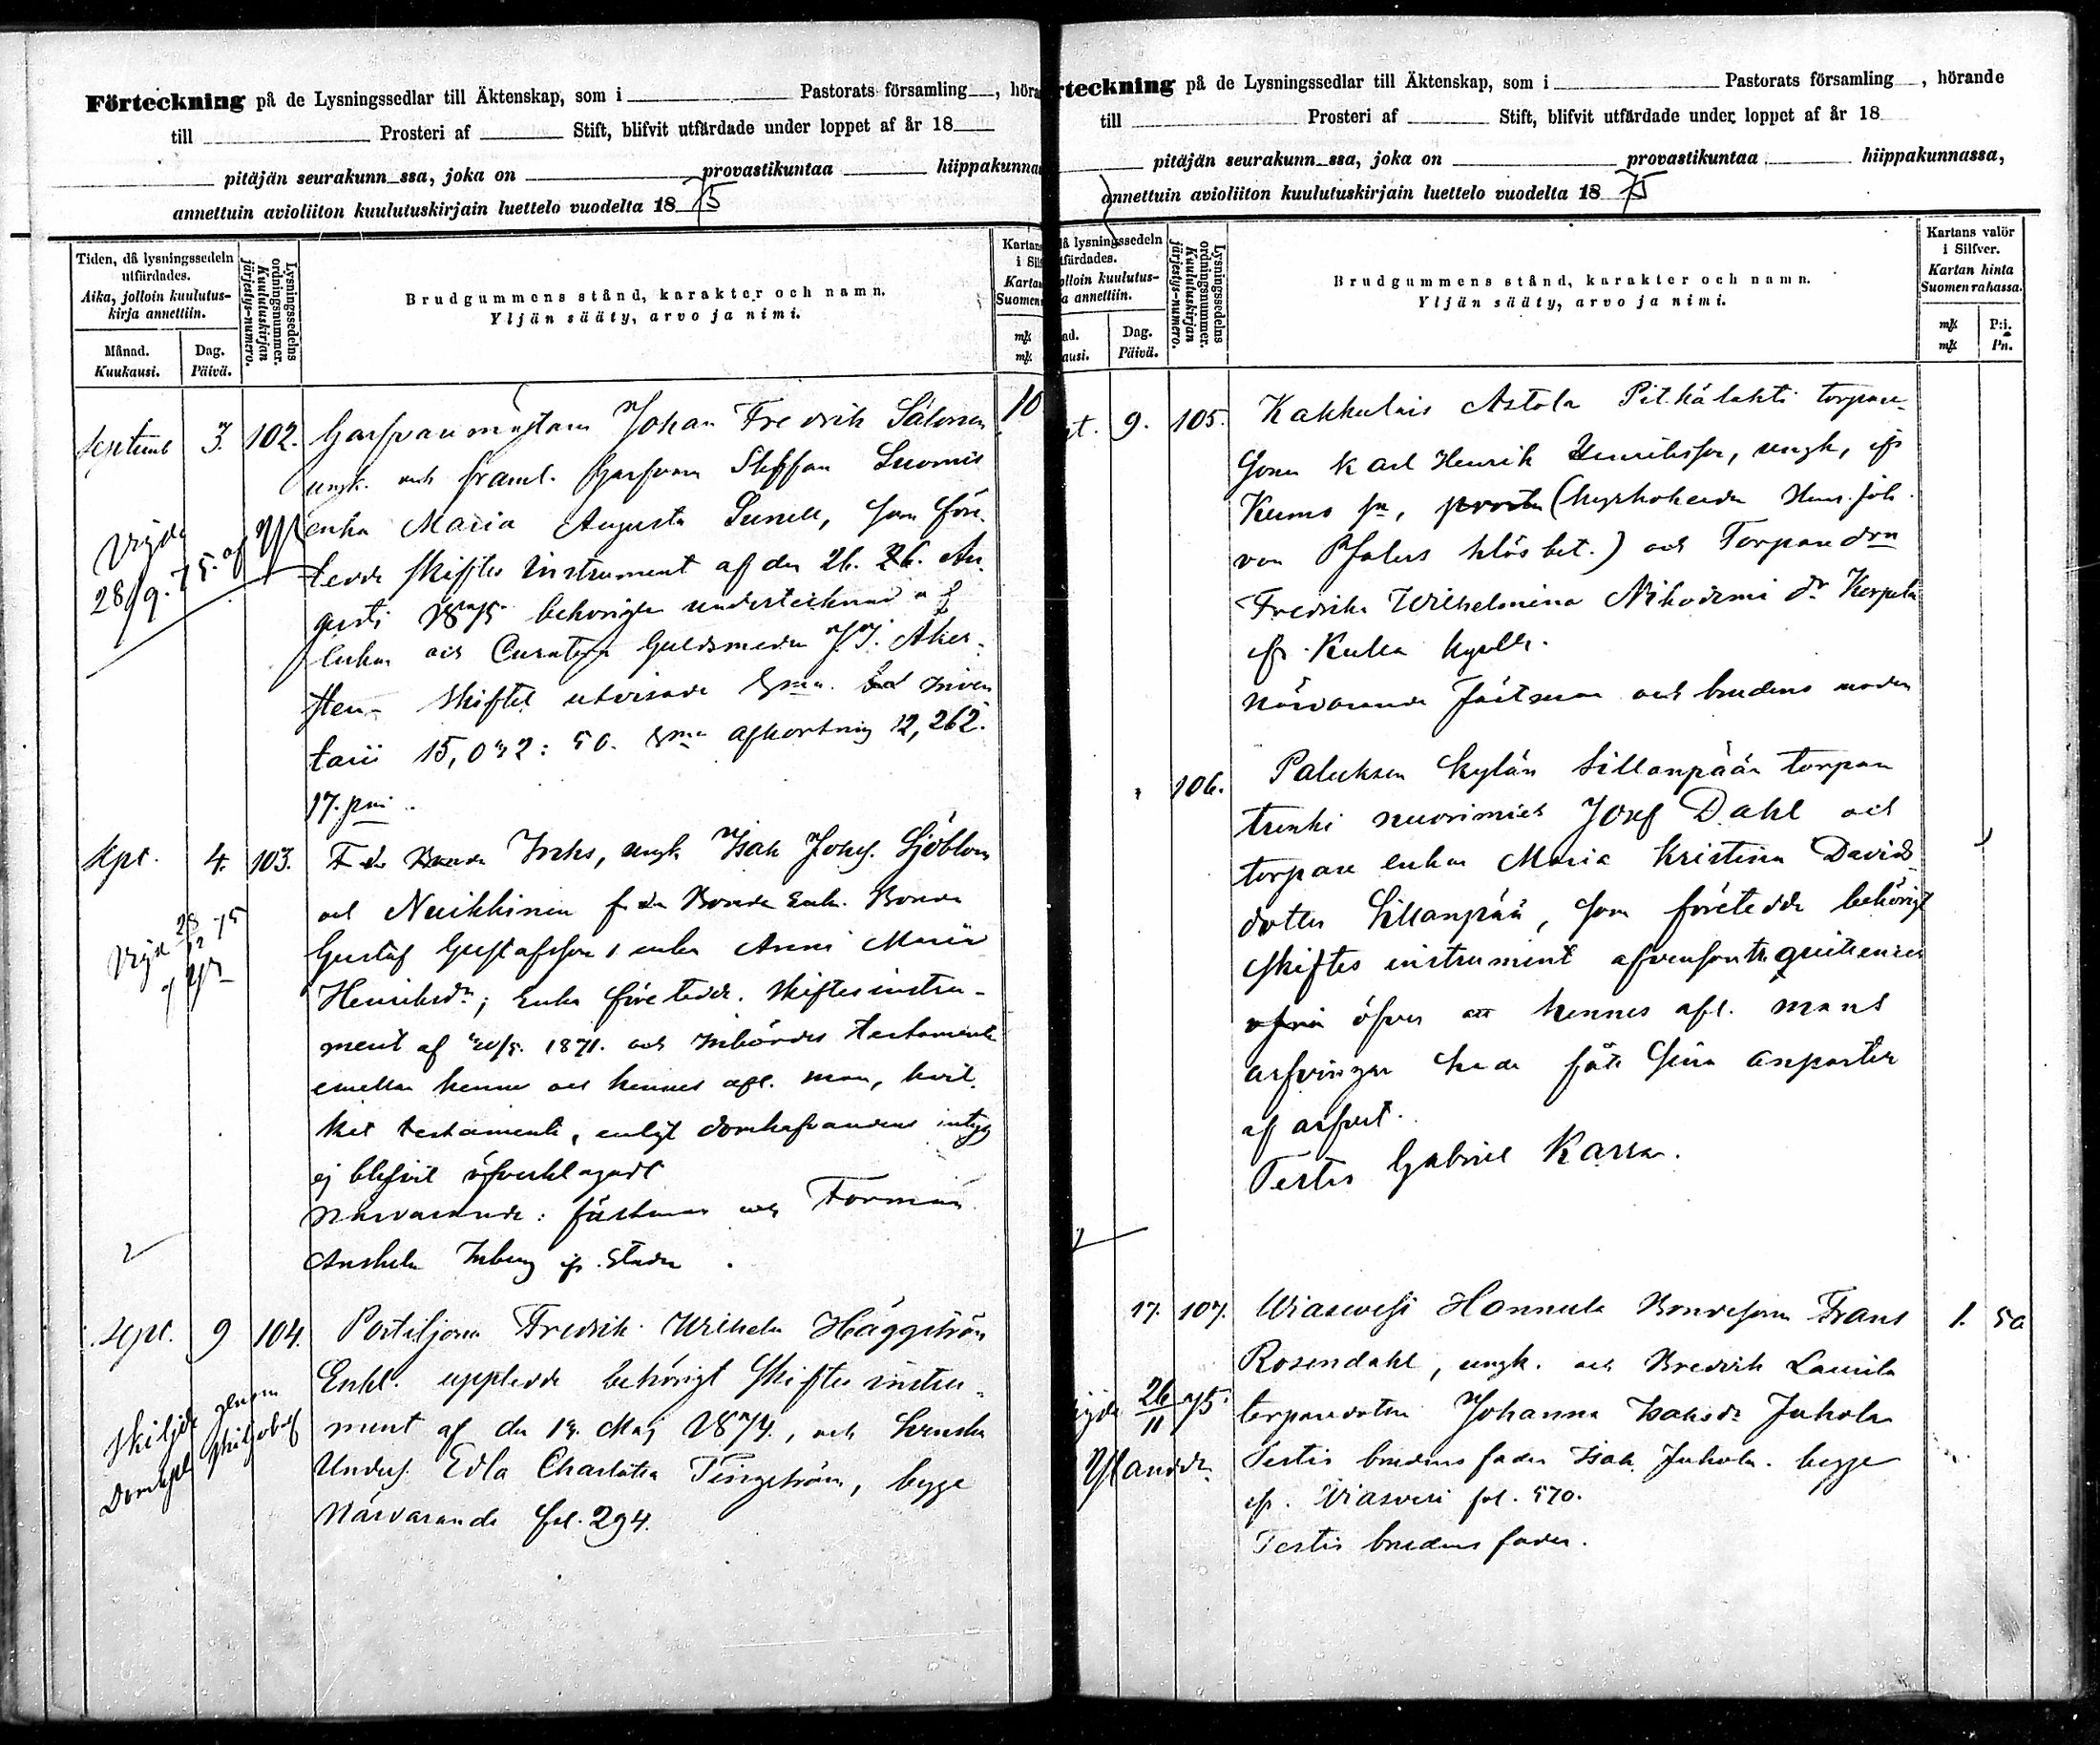 Förteckning på de Lysningssedlar till Äktenskap, som i Pastorats församling, höra
till Prosteri af Stift, blifvit utfärdade under loppet af år 18
pitäjän seurakunn ssa, joka on provastikuntaa hiippakunna
annettuin avioliiton kuulutuskirjain luettelo vuodelta 1875
Tiden, då lysningssedeln utfärdades.
Aika, jolloin kuulutus-
kirja annettiin.
Månad.
Kuukausi.
Dag.
Päivä.
Lysningssedelns
ordningsnummer.
Kuulutuskirjan
järjestys-numero.
Brudgummens stånd, karakter och namn.
Yljän sääty, arvo ja nimi.
Septemb 3. 102. Garfvaremästaren Johan Fredrik Salonen 10
ungk. och framl. Garfvaren Steffan Suomis
enka Maria Augusta Sunell, som före-
tedde skiftes instrument af den 26. Au-
gusti 1875 behörigen undertecknad af
enkan och Curatorn Guldsmeden J. J. Åker-
sten. Skiftet utvisade Sma. Inven
tarii 15,072: 50. Sma afkortning 12,262.
17. pni
Vigde
28/9. 75. af
Sept. 4. 103. ungk Isak Josefs. Sjöblom
och Neikkinen f. d. Bonde Enk. Bonden
Gustaf Gustafsson s enka Anna Maria
Henriksdr; Enkan företedde. Skiftesinstru-
ment af 20/5. 1871. och Inbördes testamente
emellan henne och hennes afl. man, hvil-
ket testamente, enligt domhafvandens intyg
ej blifvit öfverklagadt
Närvarande: fästman och Forman
Anshelm Inberg ifr. Staden.
Vigde 28/12 75
Sept. 9 104. Postiljonen Fredrik Wilhelm Häggström
Enkl. uppledde behörigt Skiftes instru-
ment af den 13. Maj 1874., och Svenska
Unders. Edla Charlotta Tengström, begge
Närvarande fol. 294.
Skiljde genom
Domkapl skiljobref
rteckning på de Lysningssedlar till Äktenskap, som i Pastorats församling, hörande
till Prosteri af Stift, blifvit utfärdade under loppet af år 18
pitäjän seurakunn ssa, joka on provastikuntaa hiippakunnassa,
annettuin avioliiton kuulutuskirjain luettelo vuodelta 1875
då lysningssedeln
Dag.
Päivä.
Lysningssedelns
ordningsnummer.
Kuulutuskirjan
järjestys-numero.
Brudgummens stånd, karakter och namn.
Yljän sääty, arvo ja nimi.
Kartans valör
i Silfver.
Kartan hinta
Suomen rahassa.
mk P:i.
mk Pn.
9. 105. Kakkulais Astola Pitkälahti torpare-
sonen Karl Henrik Henriksson, ungk, ifr
Kumo sn, (kyrkoherden Henr. Joh.
von Pfalers lös bet.) och Torpare drn
Fredrika Wilhelmina Nikodemi dr Kerpola
ifr. Kulla kapell.
närvarande fästman och brudens moder
106. Paluksen kylän Sillanpään torpan
trenki nuorimies Josef Dahl och
torpare enkan Maria Kristina Davids
dotter Sillanpää, som företedde behörigt
Skiftes instrument afvensom
öfver att hennes afl. mans
arfvingar hade fått sina anparter
af arfvet.
Testis Gabriel Karra.
17. 107. Wiasvesi Hannula Bondesonen Frans 1. 50
Rosendahl, ungk. och Bredvik Laurila
torparedotter Johanna Isaksdr Juhola
Testis brudens fader Isak Juhola. begge
ifr. Wiasvesi fol. 570.
Testis brudens fader.
26/11 75.